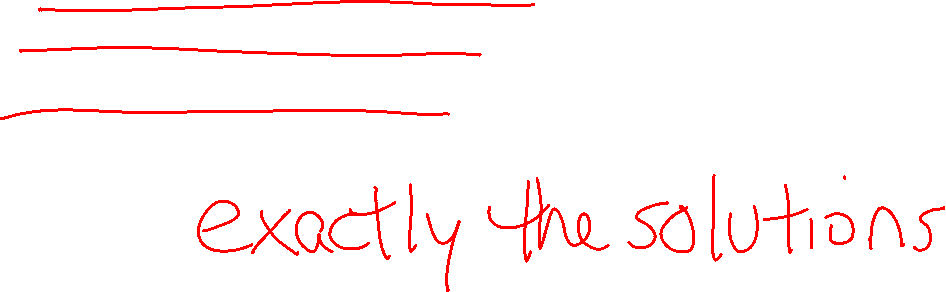 exactly the solutions